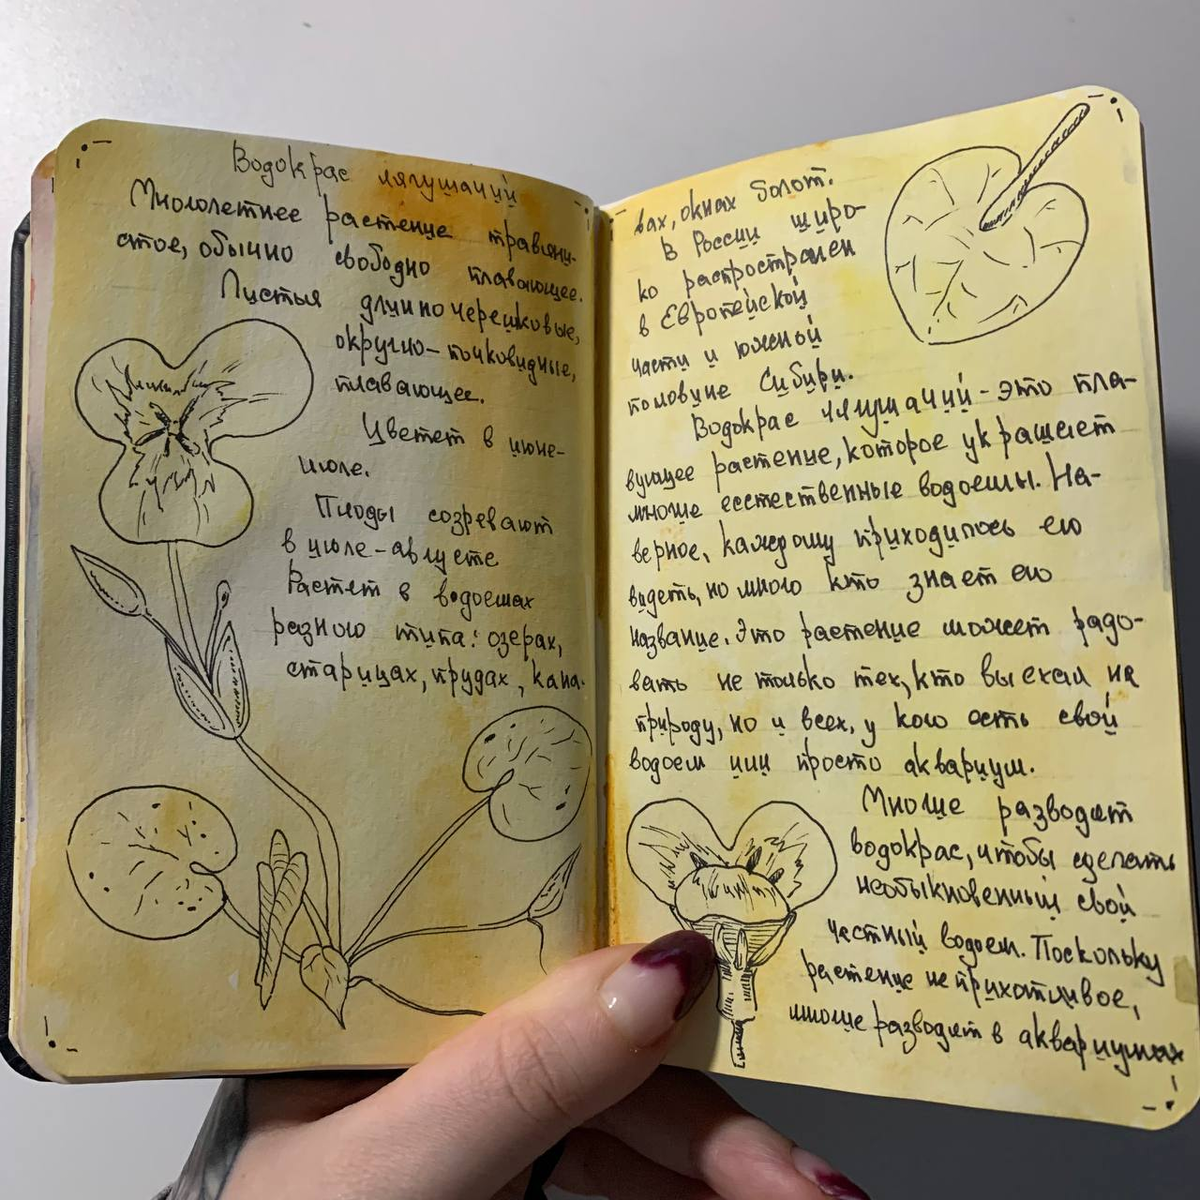 Водокрас лягушачий
Многолетнее растение травяни-
стое, обычно свободно плавающее.
Листья длинночерешковые,
округло-почковидные,
плавающее.
Цветет в июне-
июле.
Плоды созревают
в июле-августе
Растет в водоемах
разного типа: озерах,
старицах, прудах, кана-
вах, окнах болот.
В России широ-
ко распространен
в Европейской
части и южной
половине Сибири.
Водокрас лягушачий - это пла-
вующее растение, которое украшает
многие есстественные водоемы. На-
верное, каждому приходилось его
видеть, но много кто знает его
название. Это растение может радо-
вать не только тех, кто выехал на
природу, но и всех, у кого есть свой
водоем или просто аквариум.
Многие разводят
водокрас, чтобы сделать
необыкновенный свой
честный водоем. Поскольку
растение неприхотливое,
многие разводят в аквариумах